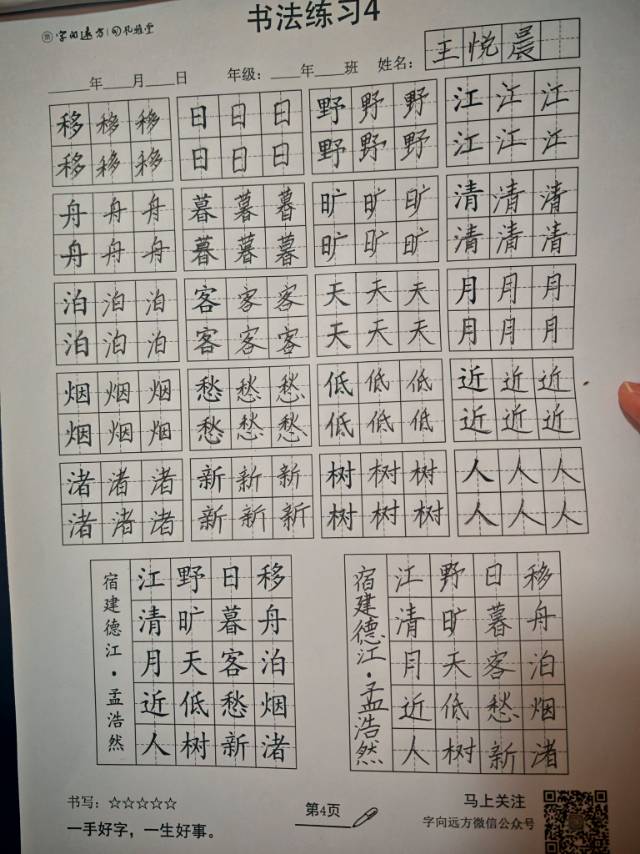 字向远方 书法练习4
____年___月___日 年级：___年___班 姓名：王悦晨
移移移 日日日 野野野 江江江
移移移 日日日 野野野 江江江
舟舟舟 暮暮暮 旷旷旷 清清清
舟舟舟 暮暮暮 旷旷旷 清清清
泊泊泊 客客客 天天天 月月月
泊泊泊 客客客 天天天 月月月
烟烟烟 愁愁愁 低低低 近近近
烟烟烟 愁愁愁 低低低 近近近
渚渚渚 新新新 树树树 人人人
渚渚渚 新新新 树树树 人人人
移舟泊烟渚
日暮客愁新
野旷天低树
江清月近人
宿建德江·孟浩然
移舟泊烟渚
日暮客愁新
野旷天低树
江清月近人
宿建德江·孟浩然
书写：☆☆☆☆☆
一手好字，一生好事。
第4页
马上关注
字向远方微信公众号